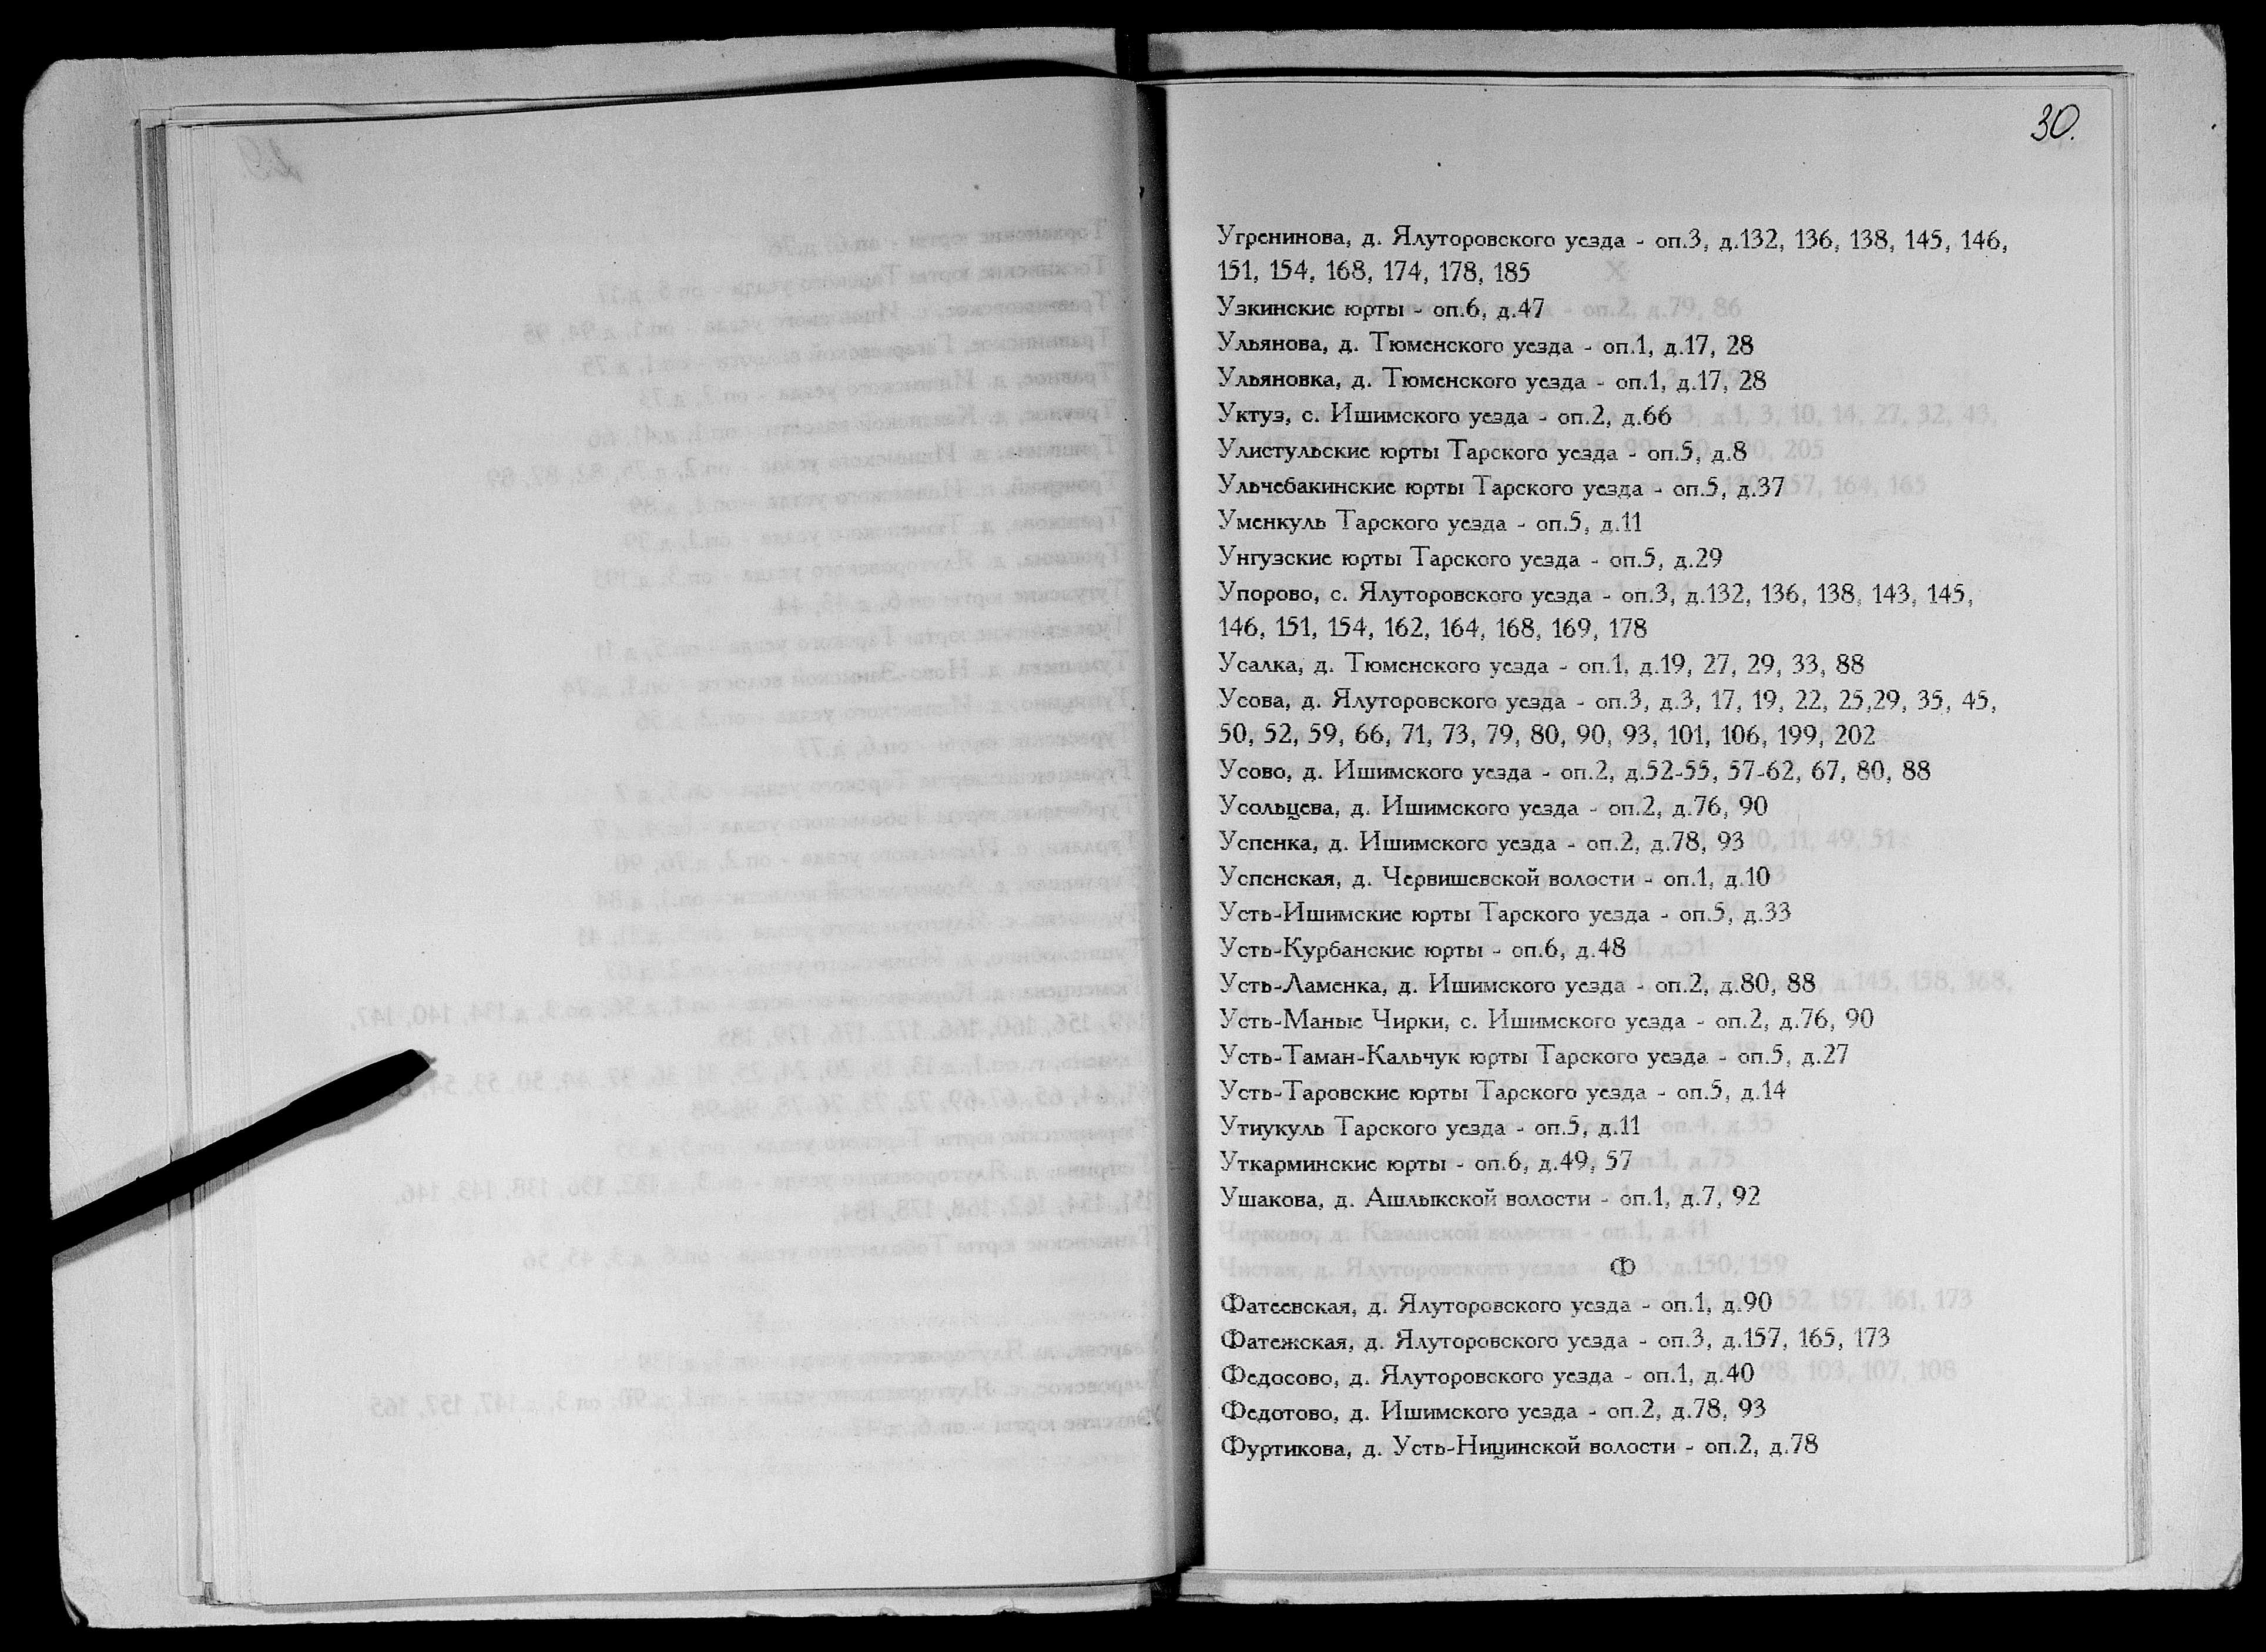 30.
Угренинова, д. Ялуторовского уезда - оп.3, д.132, 136, 138, 145, 146,
151, 154, 168, 174, 178, 185
Узкинские юрты - оп.6, д.47
Ульянова, д. Тюменского уезда - оп.1, д.17, 28
Ульяновка, д. Тюменского уезда - оп.1, д.17, 28
Уктуз, с. Ишимского уезда - оп.2, д.66
Улистульские юрты Тарского уезда - оп.5, д.8
Ульчебакинские юрты Тарского уезда - оп.5, д.37
Уменкуль Тарского уезда - оп.5, д.11
Унгузские юрты Тарского уезда - оп.5, д.29
Упорово, с. Ялуторовского уезда - оп.3, д.132, 136, 138, 143, 145,
146, 151, 154, 162, 164, 168, 169, 178
Усалка, д. Тюменского уезда - оп.1, д.19, 27, 29, 33, 88
Усова, д. Ялуторовского уезда - оп.3, д.3, 17, 19, 22, 25,29, 35, 45,
50, 52, 59, 66, 71, 73, 79, 80, 90, 93, 101, 106, 199, 202
Усово, д. Ишимского уезда - оп.2, д.52-55, 57-62, 67, 80, 88
Усольцева, д. Ишимского уезда - оп.2, д.76, 90
Успенка, д. Ишимского уезда - оп.2, д.78, 93
Успенская, д. Червишевской волости - оп.1, д.10
Усть-Ишимские юрты Тарского уезда - оп.5, д.33
Усть-Курбанские юрты - оп.6, д.48
Усть-Ламенка, д. Ишимского уезда - оп.2, д.80, 88
Усть-Маные Чирки, с. Ишимского уезда - оп.2, д.76, 90
Усть-Таман-Кальчук юрты Тарского уезда - оп.5, д.27
Усть-Таровские юрты Тарского уезда - оп.5, д.14
Утиукуль Тарского уезда - оп.5, д.11
Уткарминские юрты - оп.6, д.49, 57
Ушакова, д. Ашлыкской волости - оп.1, д.7, 92
Ф
Фатеевская, д. Ялуторовского уезда - оп.1, д.90
Фатежская, д. Ялуторовского уезда - оп.3, д.157, 165, 173
Федосово, д. Ялуторовского уезда - оп.1, д.40
Федотово, д. Ишимского уезда - оп.2, д.78, 93
Фуртикова, д. Усть-Ницинской волости - оп.2, д.78